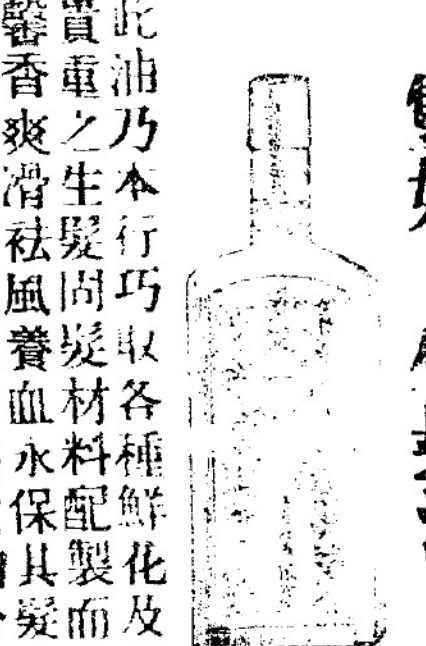 此油乃本行巧取各種鮮花及
貴重之生髮固髮材料配製而
馨香爽滑祛風養血永保其髮